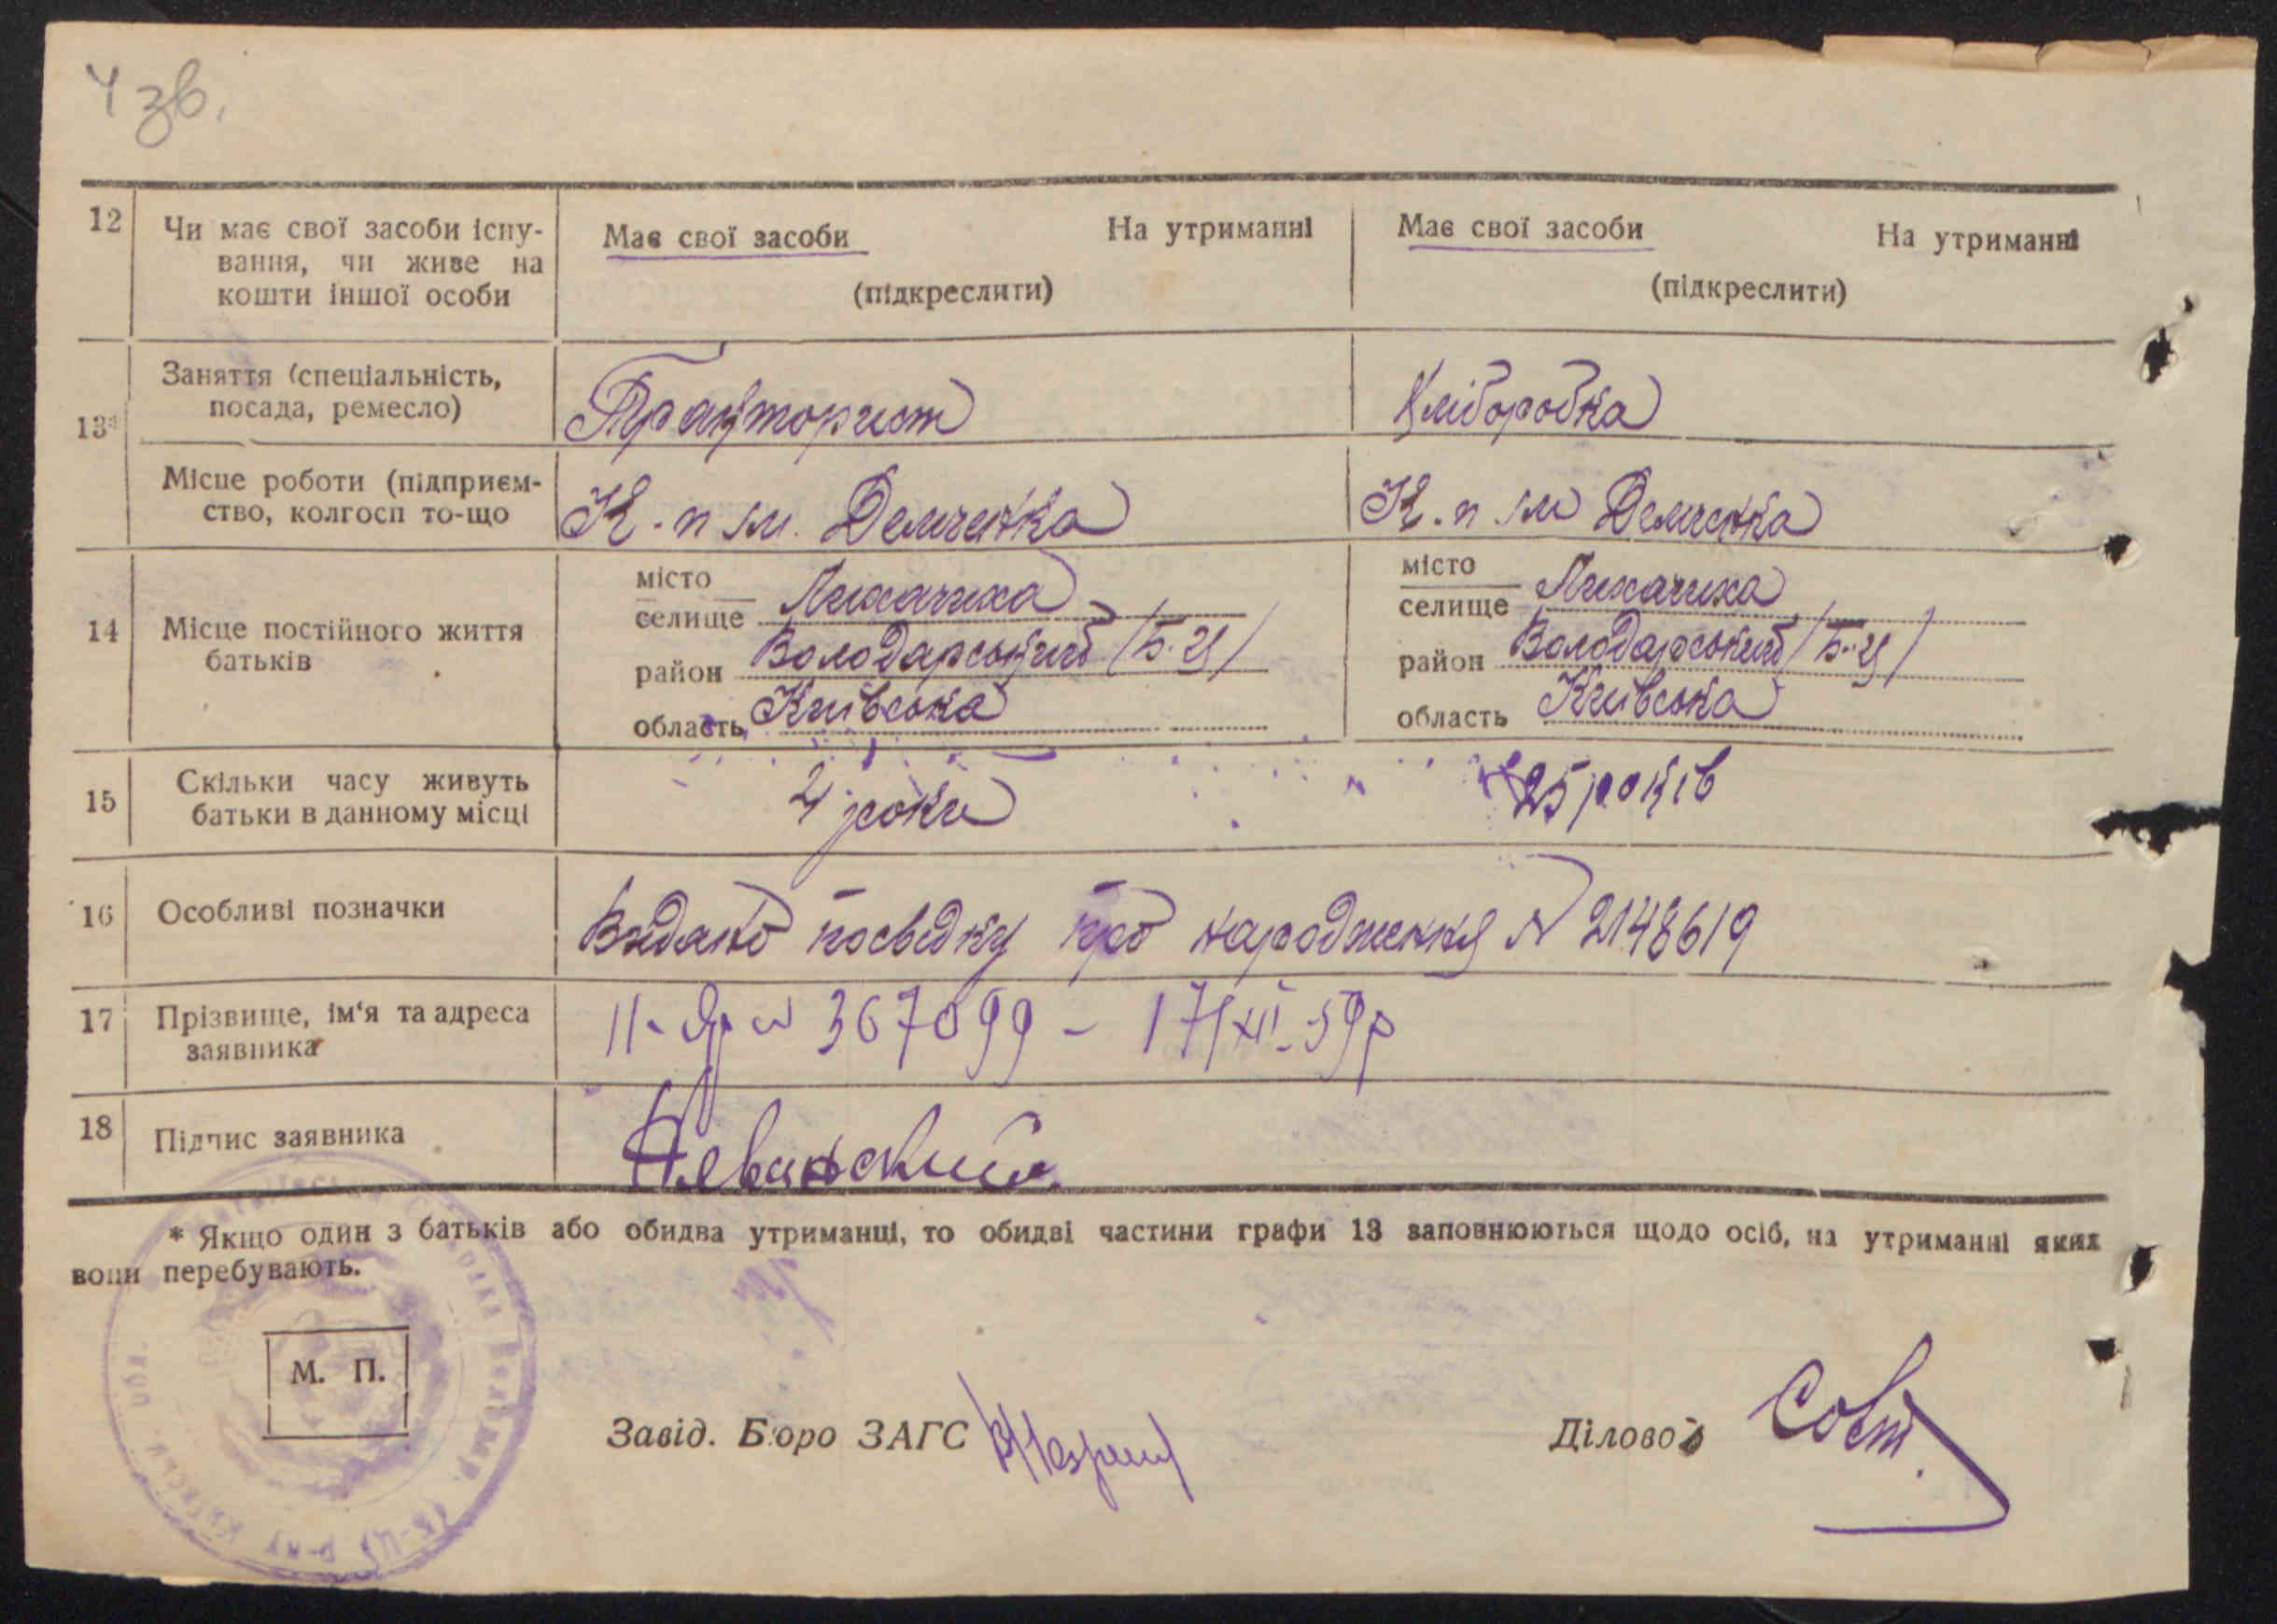 4 зв.
12 Чи має свої засоби існу- Має свої засоби На утриманні Має свої засоби На утриманні
вання, чи живе на
кошти іншої особи (підкреслити) (підкреслити)
13* Заняття (спеціальність, Тракторист Хліборобка
посада, ремесло)
Місце роботи (підприєм- К-п ім. Демченка К-п ім Демченка
ство, колгосп то-що
14 Місце постійного життя місто місто
батьків селище Лихачиха селище Лихачиха
район Володарський /Б.Ц/ район Володарський /Б.Ц/
область Київська область Київська
15 Скільки часу живуть 4 роки 25 років
батьки в данному місці
16 Особливі позначки Видано посвідку про народження N 2148619
17 Прізвище, ім'я та адреса 367099 – 17/XII-59р
заявника
18 Підпис заявника
* Якщо один з батьків або обидва утриманці, то обидві частини графи 13 заповнюються щодо осіб, на утриманні яких
вони перебувають.
М. П.
Завід. Бюро ЗАГС Діловод